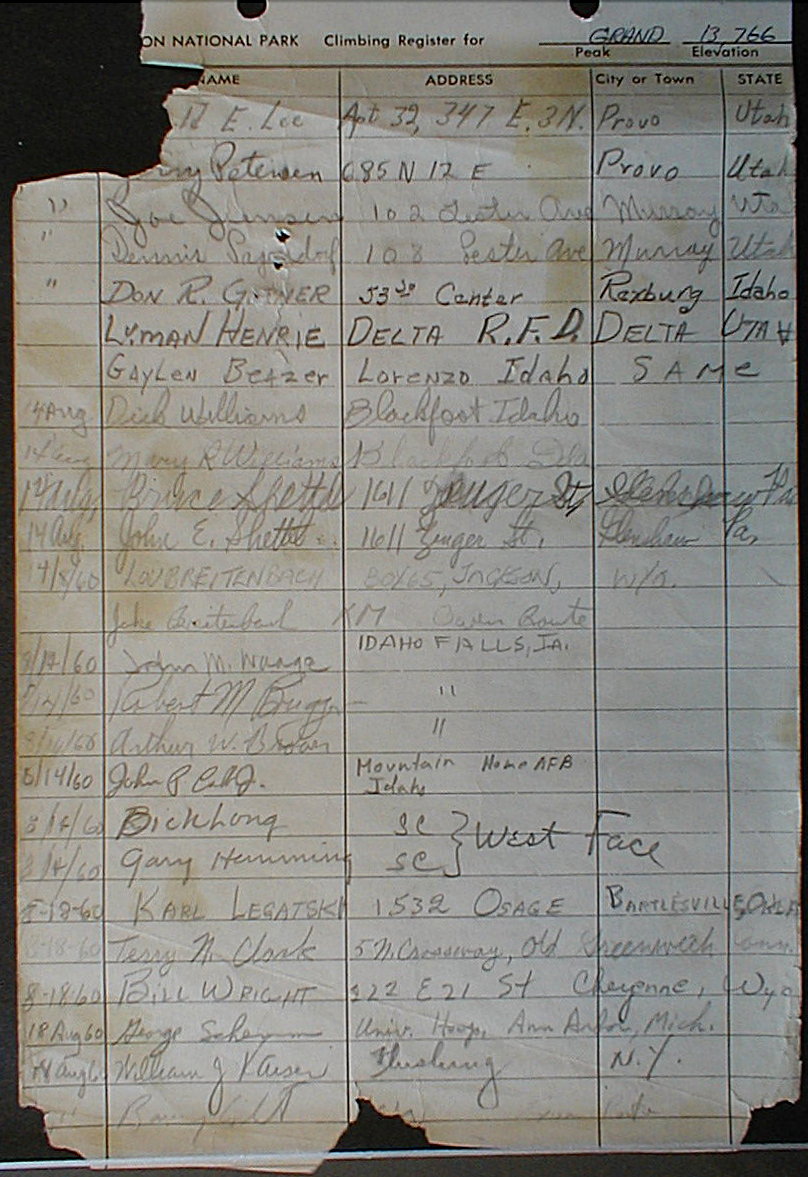 ON NATIONAL PARK Climbing Register for GRAND 13,766
Peak Elevation
NAME ADDRESS City or Town STATE
E. Lee Apt 32, 347 E. 3N. Provo Utah
Petersen 685 N 12 E Provo Utah
" Joe Jensen 102 Lester Ave Murray Uta
" Dennis 108 Lester Ave Murray Utah
" DON R. 53 Center Rexburg Idaho
LYMAN HENRIE DELTA R.F.D. DELTA UTAH
GAYLEN BEAZER LORENZO Idaho SAME
14 Aug Dick Williams Blackfoot Idaho
14 Aug Mary R Williams Blackfoot Ida
14 Aug, Bruce Shettel 1611 Zenger St, Pa
14 Aug. John E. Shettel 1611 Zenger St. Glenshaw Pa,
14/8/60 LOU BREITENBACH BOX 65, JACKSON, WYO.
Jake Breitenbach Owen Route
8/14/60 John M. IDAHO FALLS, IA.
8/14/60 Robert M "
8/14/60 Arthur W. Brown "
8/14/60 John P. Mountain Home AFB
Idaho
8/14/60 Dick Long SC } West Face
8/14/60 Gary Hemming SC
8-18-60 KARL LEGATSKI 1532 OSAGE BARTLESVILLE, OKLA
8-18-60 Terry N. Clark 5 N. Crossway, Old Greenwich Conn
8-18-60 BILL WRIGHT 222 E 21 St Cheyenne, Wyo
18 Aug 60 George Univ. Hosp. Ann Arbor, Mich.
18 Aug 60 William J Kaiser Flushing N.Y.
"